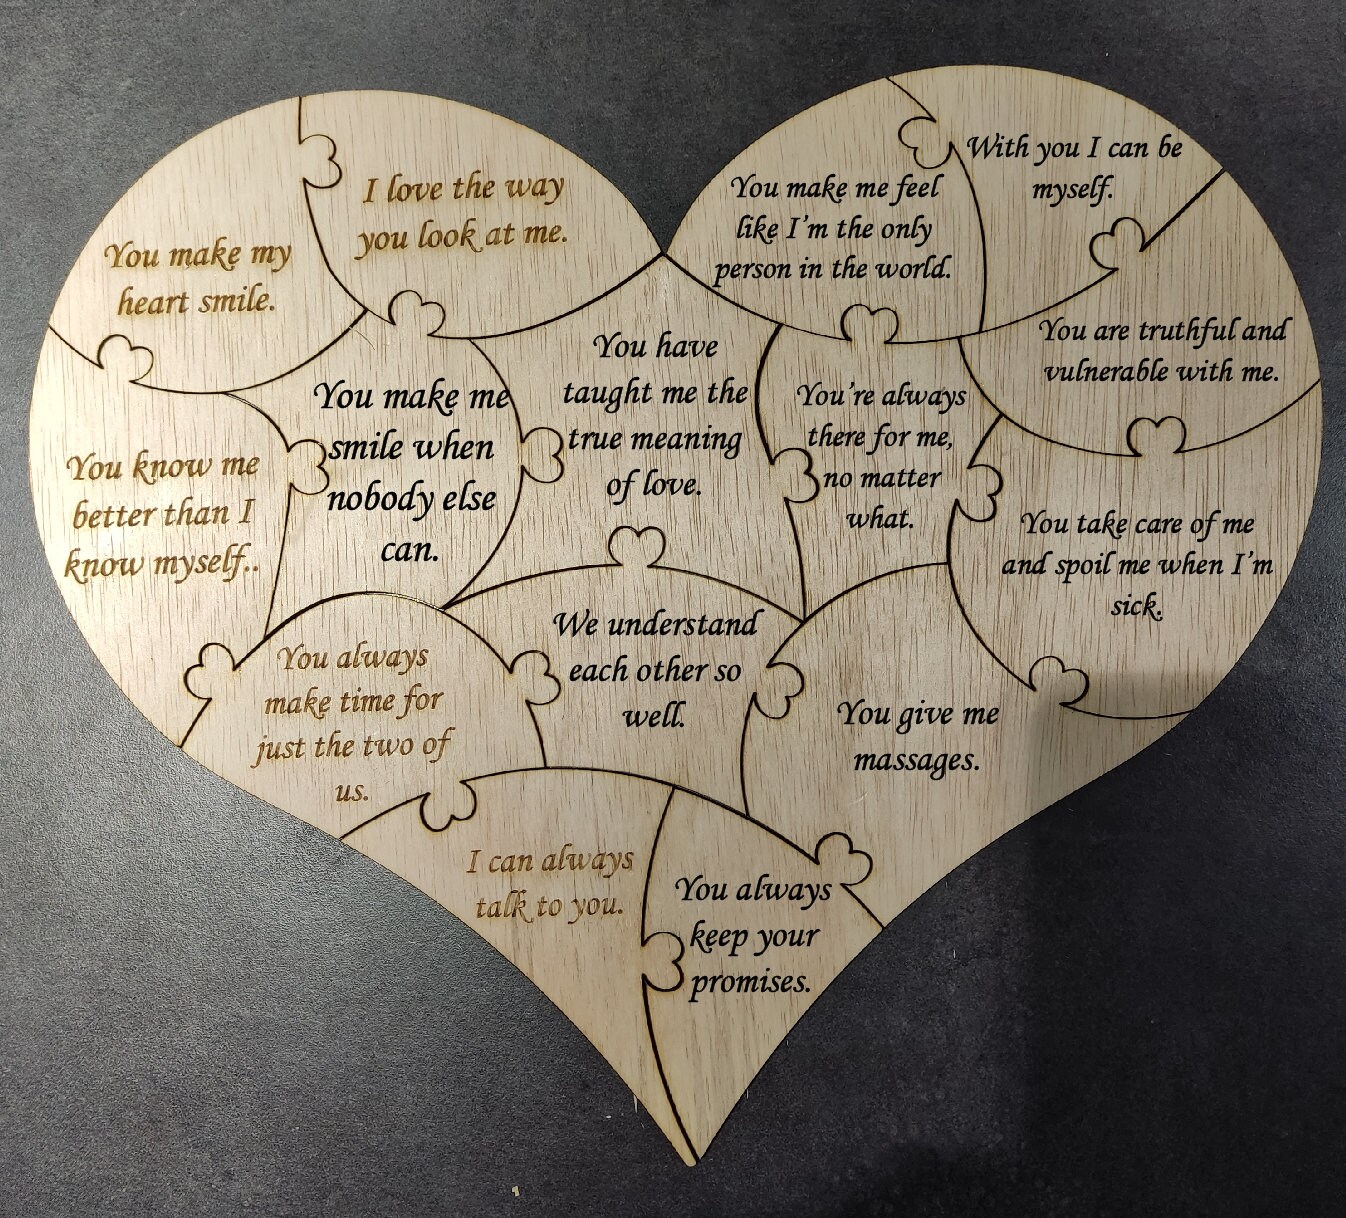 You make my
heart smile.
I love the way
you look at me.
You make me feel
like I'm the only
person in the world.
With you I can be
myself.
You know me
better than I
know myself..
You make me
smile when
nobody else
can.
You have
taught me the
true meaning
of love.
You're always
there for me,
no matter
what.
You are truthful and
vulnerable with me.
You take care of me
and spoil me when I'm
sick.
You always
make time for
just the two of
us.
We understand
each other so
well.
You give me
massages.
I can always
talk to you.
You always
keep your
promises.